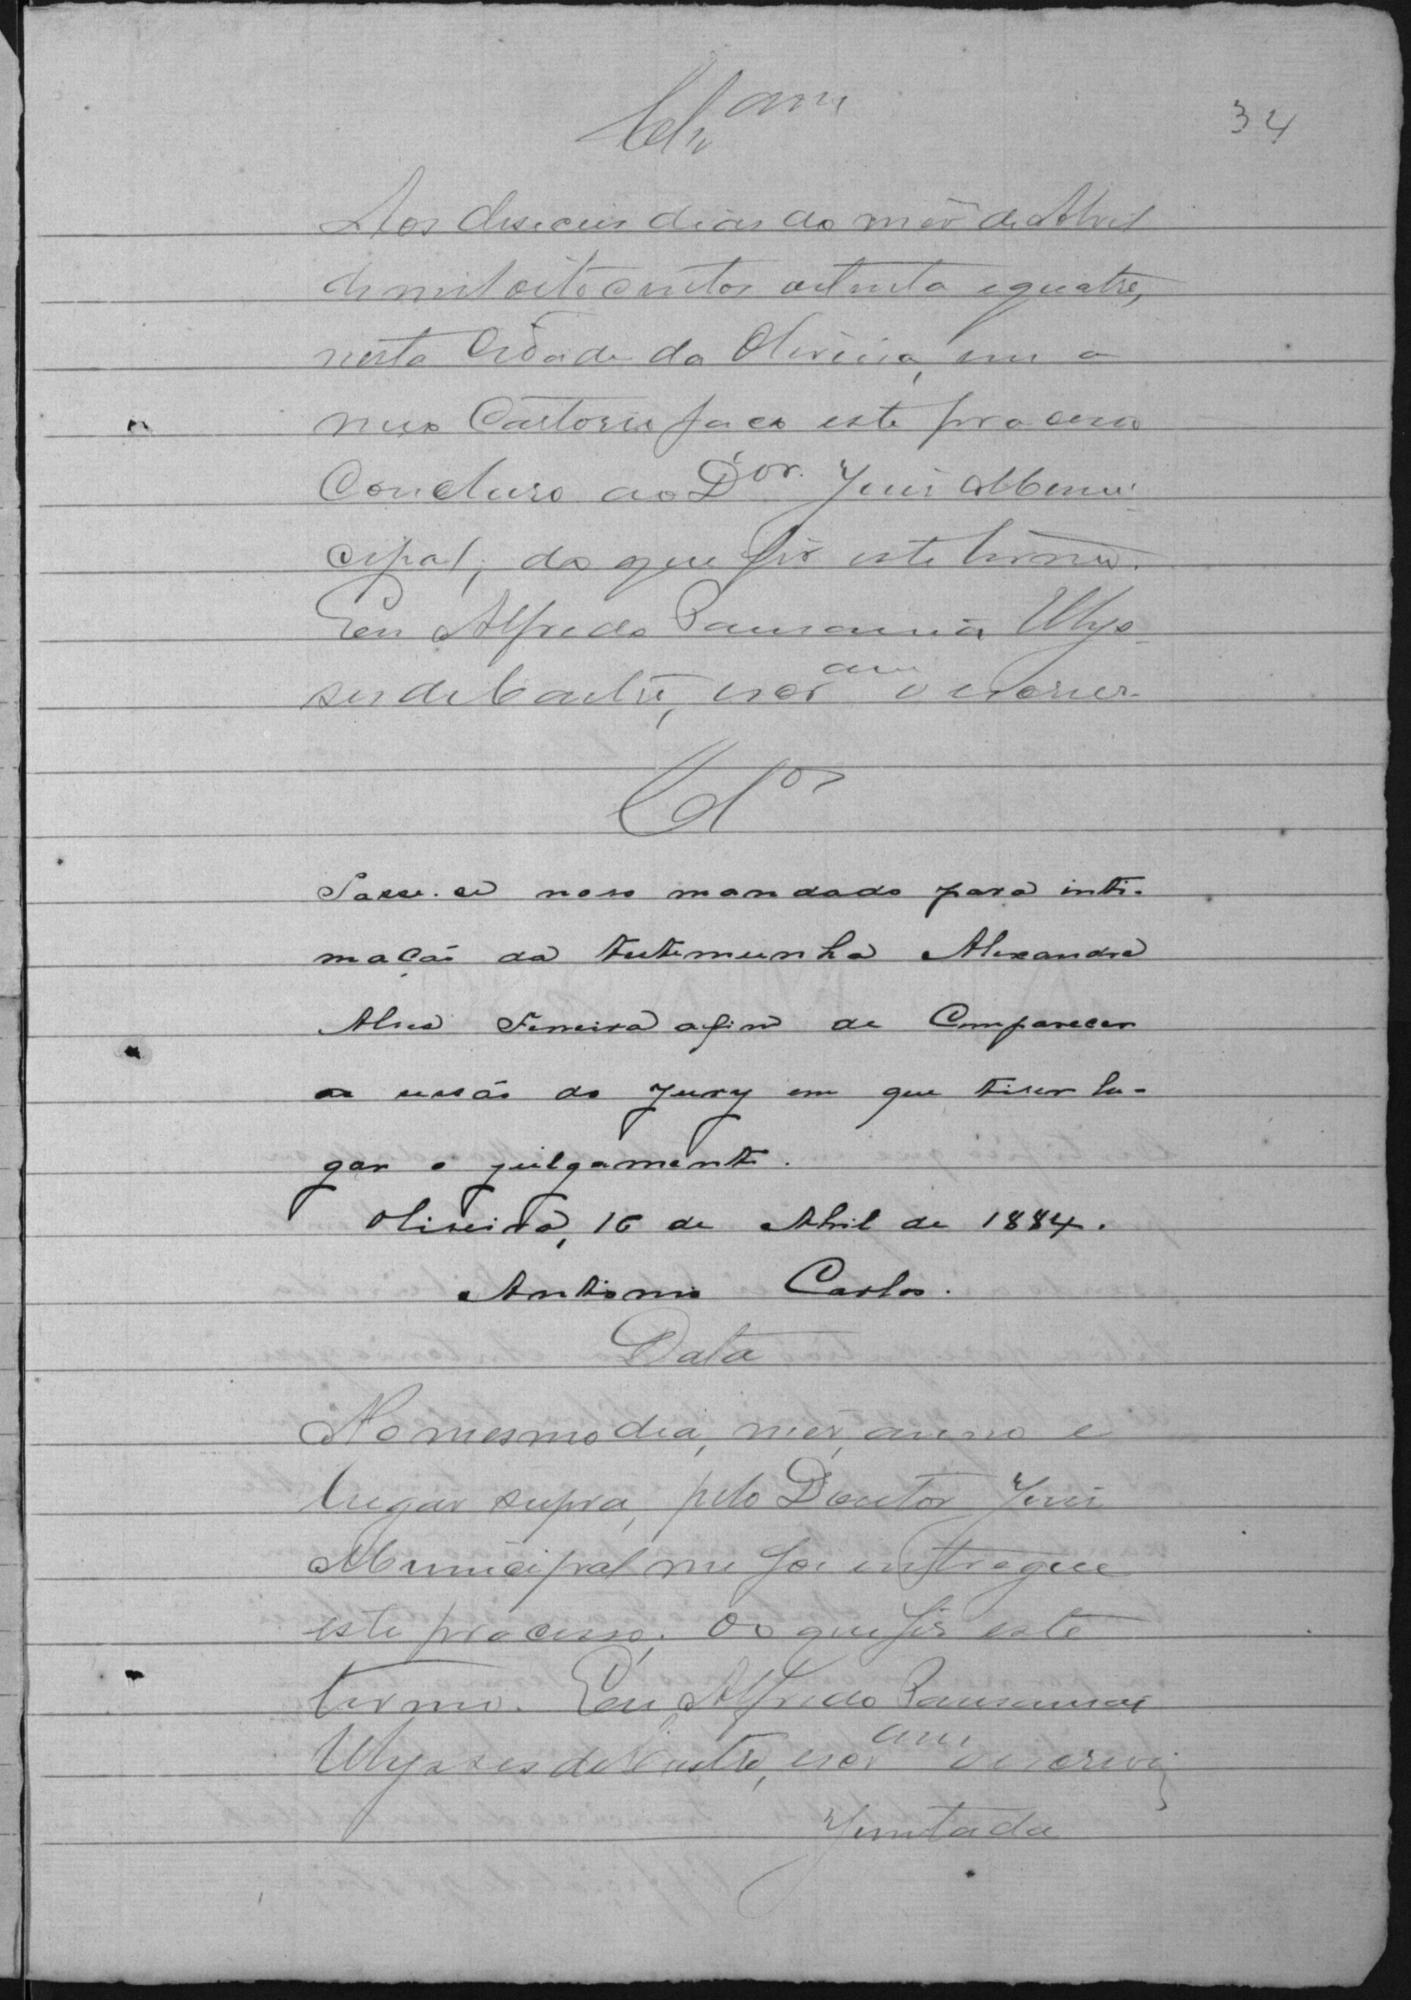 Clz.am
34
Aos deseceis dias do mêz de Abril
de mil oitocentos oitenta e quatro,
nesta Cidade da Oliveira, em o
meu Cartorio faço este processo
Concluso ao Dor. Juis Muni
cipal; do que fiz este termo.
Eu Alfredo Pausanias Ulys-
ses de Castro, escram o escrevi.
Clos
Passe-se novo mandado para inti-
mação da testemunha Alexandre
Alves Ferreira afim de Comparecer
a sessão do Jury em que tiver lu-
gar o julgamento.
Oliveira, 16 de Abril de 1884.
Antonio Carlos.
Data
No mesmo dia, mez, anno e
lugar supra, pelo Doutor Juis
Municipal me foi entregue
este processo; do que fiz este
termo. Eu Alfredo Pausanias
Ulysses de Castro, escram o escrevi
Juntada